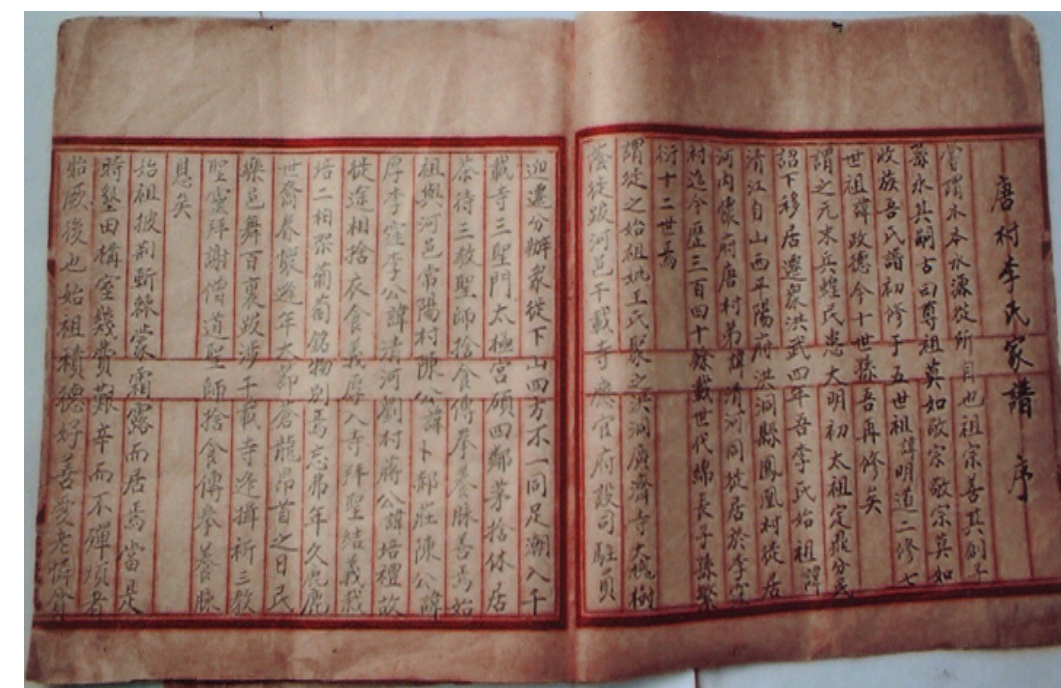 唐村李氏家譜 序
嘗謂木本水源從所自也祖宗善其創子
孫永其嗣古曰尊祖莫如敬宗敬宗莫如
收族吾氏譜初修于五世祖諱明道二修七
世祖諱政德今十世孫吾再修矣
謂之元末兵蝗民患大明初太祖定鼎分民
詔下移居遷眾洪武四年吾李氏始祖諱
清江自山西平陽府洪洞縣鳳凰村徙居
河內懷府唐村弟諱清河同徙居於李窪
村迄今歷三百四十餘載世代綿長子孫繁
衍十二世焉
謂徙之始祖妣王氏聚之洪洞廣濟寺大槐樹
蔭徙跋河邑千載寺應官府設司駐員
迎遷分辦眾徙下山四方不一同足潮入千
載寺三聖門太極宮頋四鄰茅捨休居
茶待三教聖師捨食傳拳養脉善焉始
祖與河邑常陽村陳公諱卜郝莊陳公諱
厚李窪李公諱清河劉村蔣公諱培禮故
徙途相捨衣食義厚入寺拜聖結義栽
培二相架葡萄銘物別焉忘弗年久
世裔春禊逢年大節蒼龍昂首之日民
樂邑舞百裏跋涉千載寺逢攝祈三教
聖靈拜謝僧道聖師捨食傳拳養脉
恩矣
始祖披荆斬棘蒙霜露而居焉當是
時墾田構室幾費艱辛而不殫煩者
貽厥後也始祖積德好善愛老憐貧